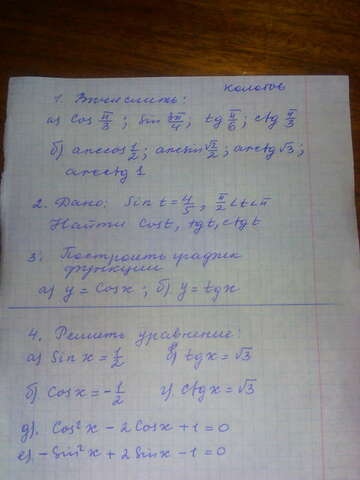 Кологов
1. Вычислить:
а) cos π/3; sin 3π/4; tg π/6; ctg π/3
б) arccos 1/2; arcsin √2/2; arctg √3;
arcctg 1
2. Дано: sin t = 4/5, π/2 < t < π
Найти cos t, tg t, ctg t
3. Построить график
функции
а) y = cos x; б) y = tg x
4. Решить уравнение:
а) sin x = 1/2 в) tg x = √3
б) cos x = -1/2 г) ctg x = √3
д). cos²x - 2 cos x + 1 = 0
е). - sin²x + 2 sin x - 1 = 0